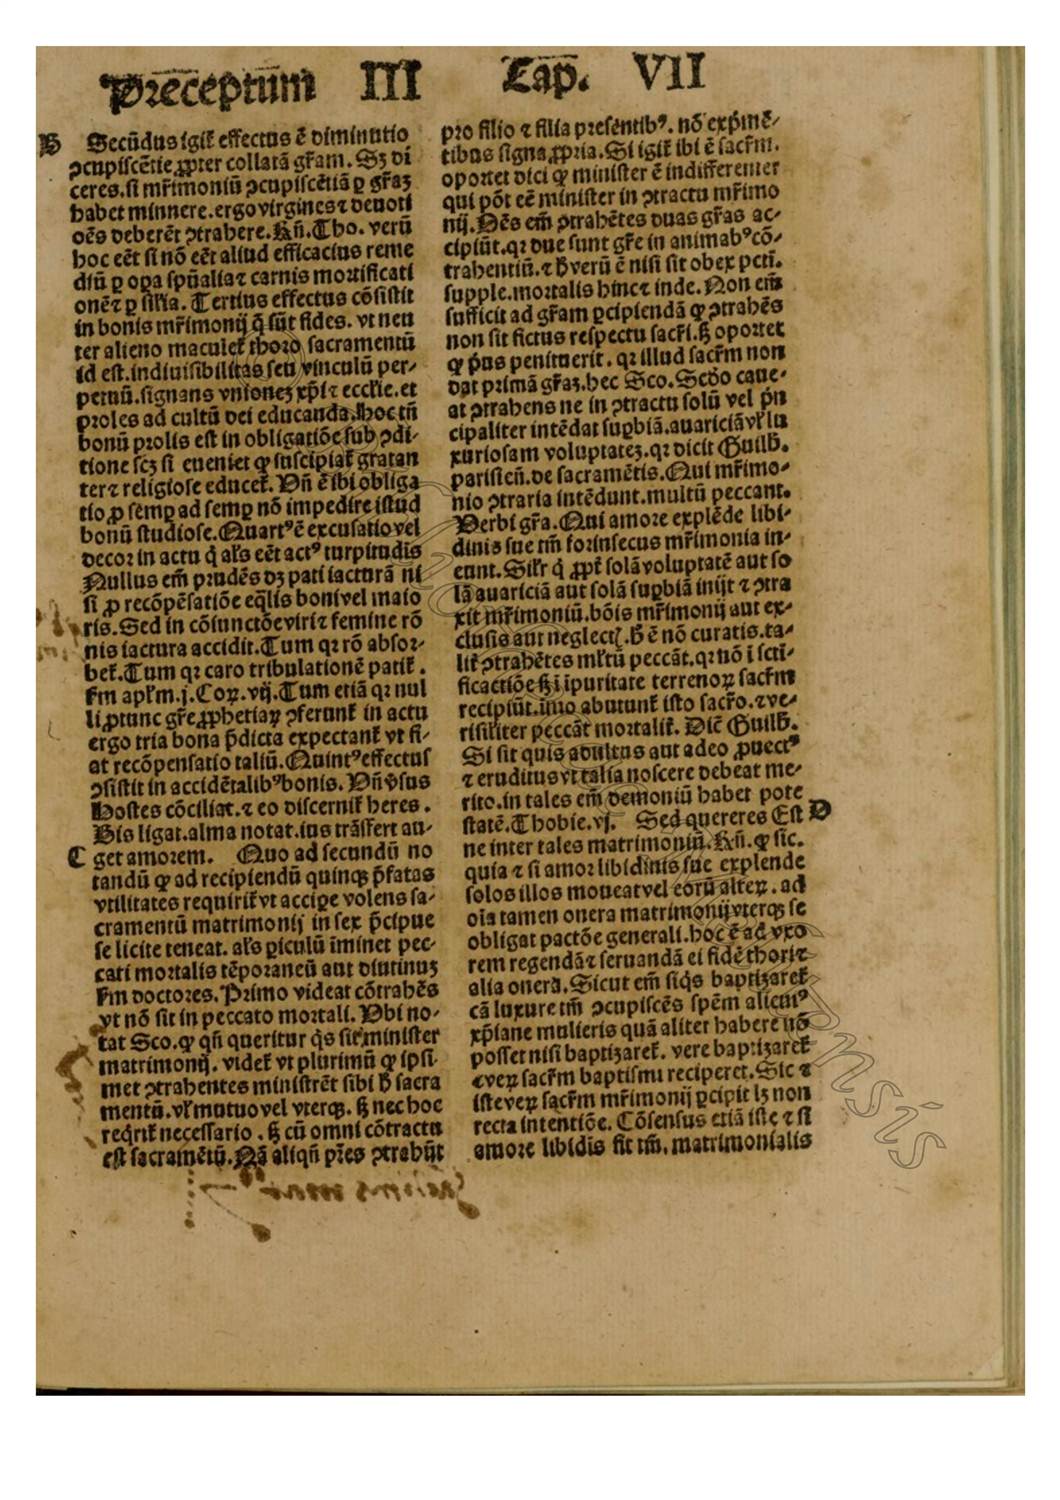 Preceptum III Cap. VII
B Secūdus igit̃ effectus ē diminutio
ꝯcupiscētie ꝓpter collatā gr̃am. Sꝫ di
ceres. si mr̃imoniū ꝯcupiscētiā ꝑ gr̃aꝫ
habet minnere. ergo virgines ⁊ deuoti
oēs deberēt ꝯtrahere. Rñ. Tho. verū
hoc eēt si nō eēt aliud efficacius reme
diū ꝑ oꝑa spūalia ⁊ carnis mortificati
onē ⁊ ꝑ sil̃ia. Tertius effectus cōsistit
in bonis mr̃imonij q̄ sūt fides. vt neu
ter alieno maculet̃ thoro sacramentū
id est. indiuisibilitas seu vinculū per-
petuū. signans vnioneꝫ xp̄i ⁊ eccl̃ie. et
proles ad cultū dei educanda. Hoc tñ
bonū prolis est in obligatiōe sub ꝯdi-
tione scꝫ si eueniet ꝙ suscipiat̃ gratan
ter ⁊ religiose educet̃. Vñ ē ibi obliga
tio ꝓ semꝑ ad semꝑ nō impedire istud
bonū studiose. Quartꝰ ē excusatio vel
decor in actu q̇ al̃s eēt actꝰ turpitudīs
Nullus em̄ prudēs dꝫ pati iacturā ni
si ꝓ recōpēsatiōe eq̄lis boni vel maio
ris. Sed in cōiunctōe viri ⁊ femine rō
nis iactura accidit. Tum qꝛ rō absor-
bet̃. Tum qꝛ caro tribulationē patit̃.
fm apl̃m. j. Coꝝ. vij. Tum etiā qꝛ nul
li ꝓtunc gr̃e ꝓphetiaꝝ ꝯferunt̃ in actu
ergo tria bona p̄dicta expectant̃ vt fi-
at recōpensatio taliū. Quintꝰ effectus
ꝯsistit in accidētalibꝰ bonis. Vñ v̄sus
Hostes cōciliat. ⁊ eo discernit̃ heres.
Bis ligat. alma notat. ius trāsfert au-
C get amorem. Quo ad secundū no
tandū ꝙ ad recipiendū quinqꝫ p̄fatas
vtilitates requirit̃ vt accipe volens sa-
cramentū matrimonij in sex p̄cipue
se licite teneat. al̃s ꝑiculū īminet pec-
cati mortalis tēporaneū aut diutinuꝫ
fm doctores. Primo videat cōtrahēs
vt nō sit in peccato mortali. Vbi no-
tat Sco. ꝙ qñ queritur q̇s sit minister
matrimonij. videt̃ vt plurimū ꝙ ipsi-
met ꝯtrahentes ministrēt sibi h̄ sacra
mentū. vl̃ mutuo vel vterqꝫ. sꝫ nec hoc
req̇rit̃ necessario. sꝫ cū omni cōtractu
est sacramētū. Nā aliqñ p̄res ꝯtrahūt
pro filio ⁊ filia presentibꝰ. nō exp̄mē-
tibus signa ꝓpria. Si igit̃ ibi ē sacr̃m.
oportet dici ꝙ minister ē indifferenter
qui pōt eē minister in ꝯtractu mr̃imo
nij. Oēs em̄ ꝯtrahētes duas gr̃as ac-
cipiūt. qꝛ due sunt gr̃e in animabꝰ cō-
trahentiū. ⁊ h̄ verū ē nisi sit obex pcti.
supple. mortalis hinc ⁊ inde. Non em̄
sufficit ad gr̃am ꝑcipiendā ꝙ ꝯtrahēs
non sit fictus respectu sacr̃i. sꝫ oportet
ꝙ p̄us penituerit. qꝛ illud sacr̃m non
dat primā gr̃aꝫ. hec Sco. Scd̄o caue-
at ꝯtrahens ne in ꝯtractu solū vel p̄n
cipaliter intēdat suꝑbiā. auariciā vl̃ lu
xuriosam voluptateꝫ. qꝛ dicit Guilh̄.
parisieñ. de sacramētis. Qui mr̃imo-
nio ꝯtraria intēdunt. multū peccant.
Verbi gr̃a. Qui amore explēde libi-
dinis sue tm̄ forinsecus mr̃imonia in-
eunt. Silr̃ q̇ ꝓpt̃ solā voluptatē aut so
lā auariciā aut solā suꝑbiā inijt ⁊ ꝯtra
xit mr̃imoniū. bōis mr̃imonij aut ex-
clusis aut neglectꝭ. H̄ ē nō curatis. ta-
lit̃ ꝯtrahētes ml̃tū peccāt. qꝛ nō ī scti-
ficactiōe sꝫ ī īpuritate terrenoꝝ sacr̃m
recipiūt. īmo abutunt̃ isto sacr̃o. ⁊ ve-
risil̃iter peccāt mortalit̃. Dic̄ Guilh̄.
Si sit quis adultus aut adeo ꝓuectꝰ
⁊ eruditus vt talia noscere debeat me-
rito. in tales em̄ demoniū habet pote
statē. Thobie. vj. Sed quereres Est D
ne inter tales matrimoniū. Rñ. ꝙ sic.
quia ⁊ si amor libidinis sue explende
solos illos moueat vel eorū alteꝝ. ad
oīa tamen onera matrimonij vterqꝫ se
obligat pactōe generali. hoc ē ad vxo
rem regendā ⁊ seruandā ei fidē thori ⁊
alia onera. Sicut em̄ siq̇s baptizaret̃
cā luxure tm̄ ꝯcupiscēs spēm alicuiꝰ
xp̄iane mulieris quā aliter habere nō
posset nisi baptizaret̃. vere baptizaret̃
⁊ veꝝ sacr̃m baptismi reciperet. Sic ⁊
iste veꝝ sacr̃m mr̃imonij ꝑcipit lꝫ non
recta intentiōe. Cōsensus etiā iste ⁊ si
amore libidīs fit tm̄. matrimonialis